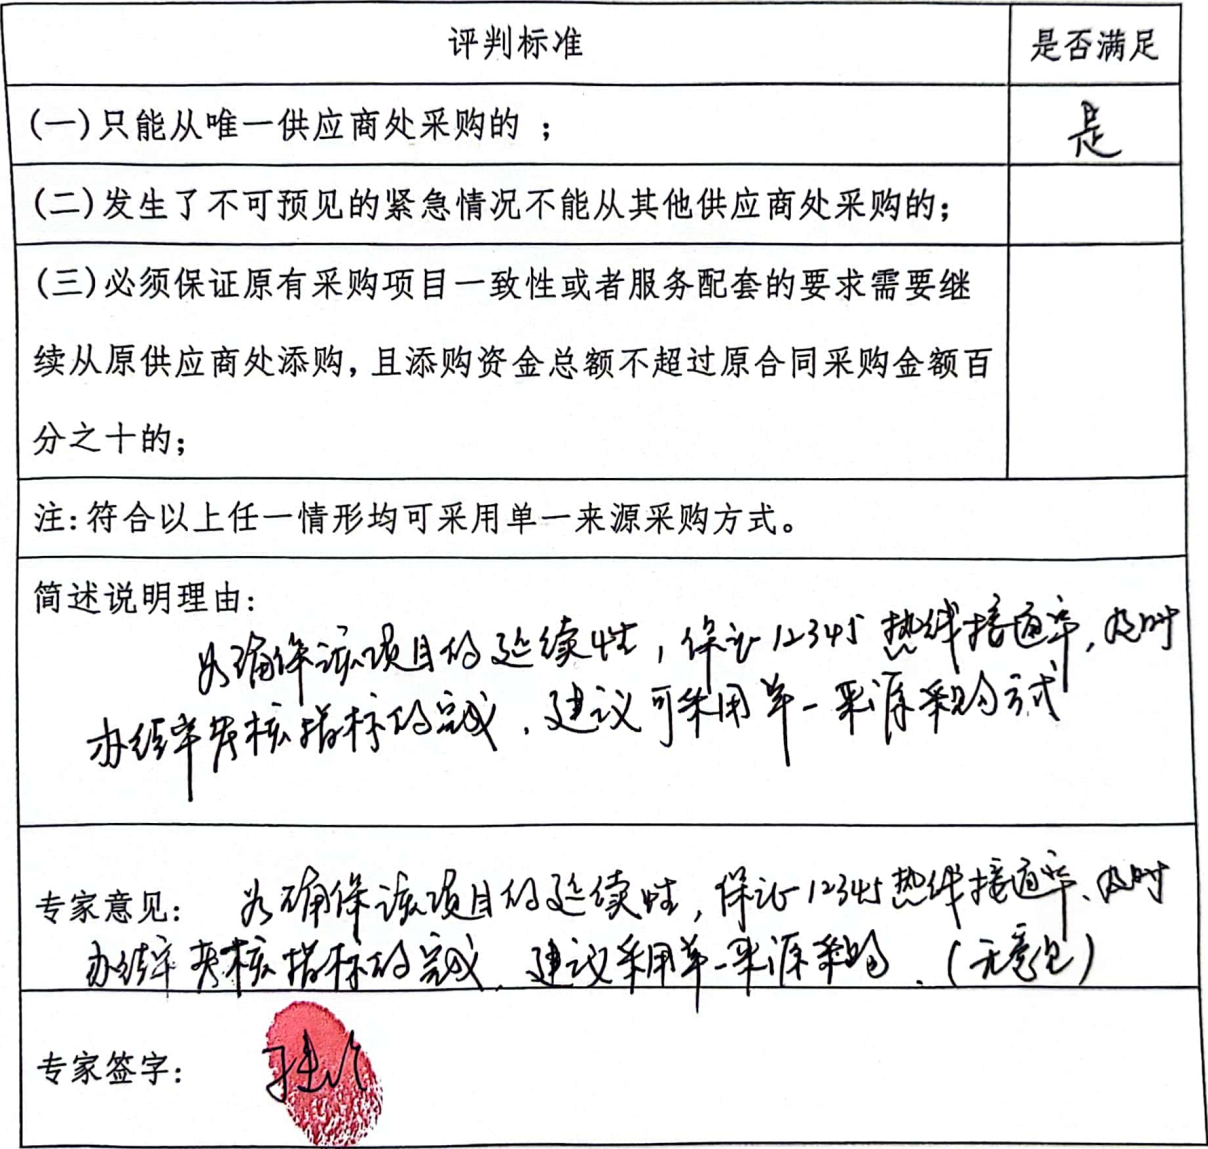 评判标准 是否满足
(一)只能从唯一供应商处采购的 ； 是
(二)发生了不可预见的紧急情况不能从其他供应商处采购的；
(三)必须保证原有采购项目一致性或者服务配套的要求需要继
续从原供应商处添购，且添购资金总额不超过原合同采购金额百
分之十的；
注：符合以上任一情形均可采用单一来源采购方式。
简述说明理由：
为确保该项目的延续性，保证12345热线接通率，及时
办结率考核指标的完成，建议可采用单一来源采购方式
专家意见： 为确保该项目的延续性，保证12345热线接通率、及时
办结率考核指标的完成，建议采用单一来源采购。（无意见）
专家签字：